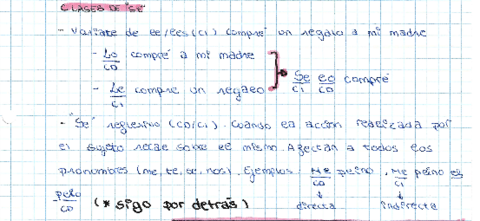 CLASES DE "SE"
- Variante de le/les (CI) compré un regalo a mi madre
- Lo compré a mi madre
CD
- Le compré un regalo
CI
Se lo compré
CI CD
- "Se" reflexivo (CD/CI). Cuando la acción realizada por
el sujeto recae sobre él mismo. Afectan a todos los
pronombres (me, te, se, nos). Ejemplos: Me peino, Me peino el
CD CI
pelo (* sigo por detrás)
CD
directa indirecta